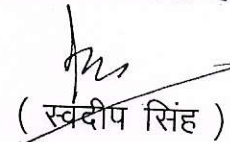 ( स्वंदीप सिंह )